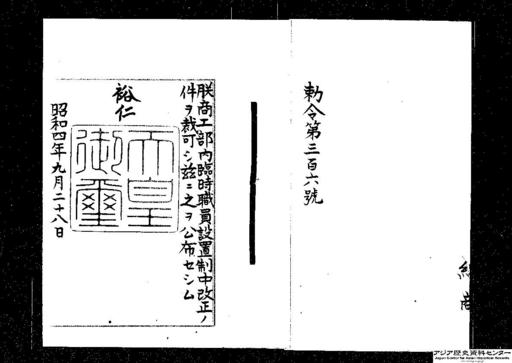 勅令第三百六號
朕商工部内臨時職員設置制中改正ノ
件ヲ裁可シ茲ニ之ヲ公布セシム
裕仁
天皇
御璽
昭和四年九月二十八日
アジア歴史資料センター
Japan Center for Asian Historical Records